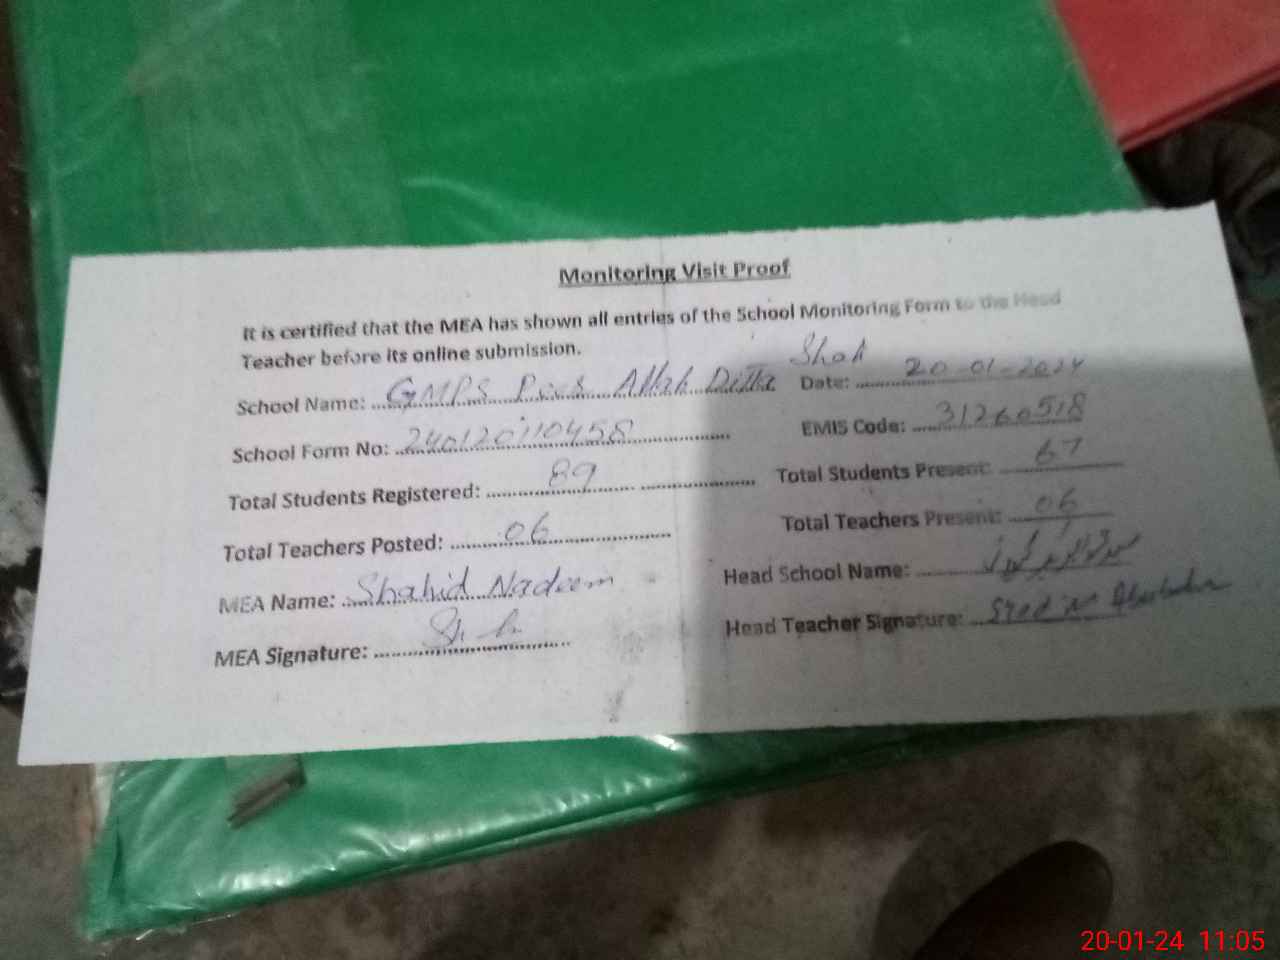 Monitoring Visit Proof
It is certified that the MEA has shown all entries of the School Monitoring Form to the Head
Teacher before its online submission.
School Name: GMPS Allah Ditta Shah Date: 20-01-2024
School Form No: 240120110458 EMIS Code: 31260518
Total Students Registered: 89 Total Students Present: 67
Total Teachers Posted: 06 Total Teachers Present: 06
MEA Name: Shahid Nadeem Head School Name:
MEA Signature: Head Teacher Signature: Syed
20-01-24 11:05